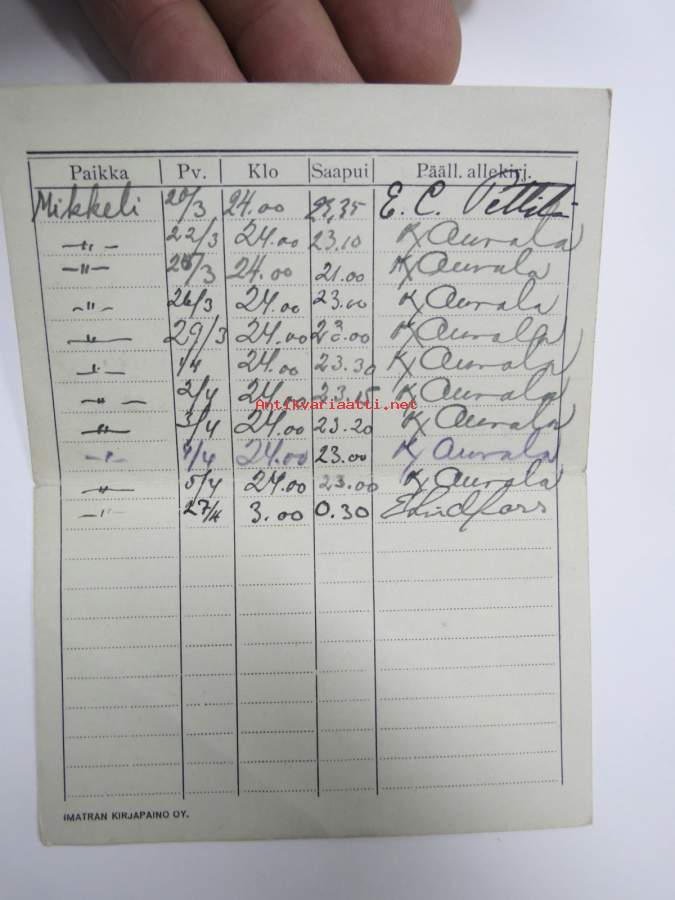 Paikka Pv. Klo Saapui Pääll. allekirj.
Mikkeli 20/3 24.00 23,35 E. C.
—"— 22/3 24.00 23,10 K Aurala
—"— 24.00 21.00 K Aurala
—"— 26/3 24.00 23.00 K Aurala
—"— 29/3 24.00 23.00 K Aurala
—"— 1/4 24.00 23.30 K Aurala
—"— 2/4 24.00 23.15 K Aurala
Antikvariaatti.net
—"— 3/4 24.00 23.20 K Aurala
—"— 4/4 24.00 23.00 K Aurala
—"— 5/4 24.00 23.00 K Aurala
—"— 27/4 3.00 0.30 E Lindfors
IMATRAN KIRJAPAINO OY.